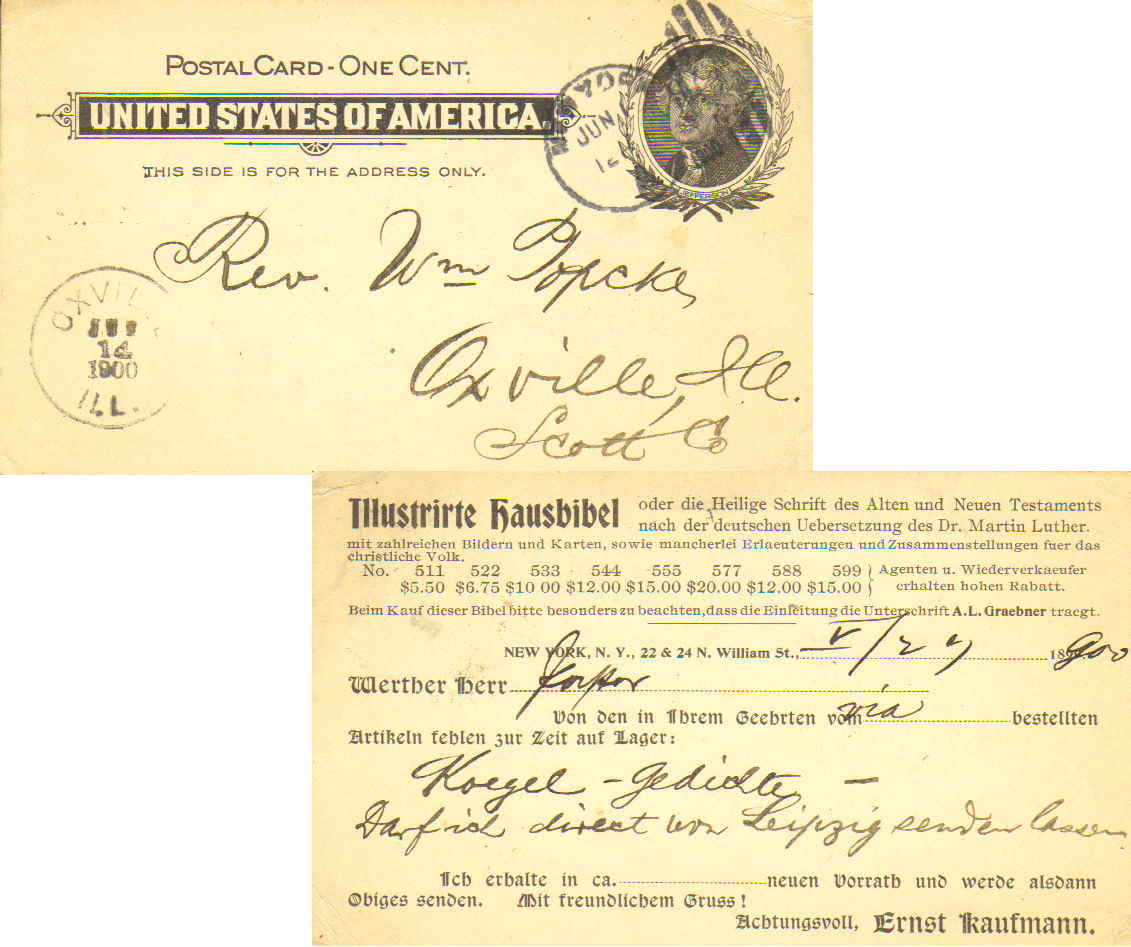 POSTAL CARD - ONE CENT.
UNITED STATES OF AMERICA.
THIS SIDE IS FOR THE ADDRESS ONLY.
JUN
12
JEFFERSON
Rev. Wm Popcke,
Oxville, Ill.
Scott Co
OXVILLE
14
1900
ILL.
Illustrirte Hausbibel
oder die Heilige Schrift des Alten und Neuen Testaments
nach der deutschen Uebersetzung des Dr. Martin Luther.
mit zahlreichen Bildern und Karten, sowie mancherlei Erlaeuterungen und Zusammenstellungen fuer das
christliche Volk.
No. 511 522 533 544 555 577 588 599 } Agenten u. Wiederverkaeufer
$5.50 $6.75 $10 00 $12.00 $15.00 $20.00 $12.00 $15.00 } erhalten hohen Rabatt.
Beim Kauf dieser Bibel bitte besonders zu beachten, dass die Einleitung die Unterschrift A.L. Graebner traegt.
NEW YORK, N. Y., 22 & 24 N. William St., V/29 18900
Werther Herr Pastor
Von den in Ihrem Geehrten vom via bestellten
Artikeln fehlen zur Zeit auf Lager:
Koegel - Gedichte -
Darf ich direct von Leipzig senden lassen
Ich erhalte in ca. neuen Vorrath und werde alsdann
Obiges senden. Mit freundlichem Gruss!
Achtungsvoll, Ernst Kaufmann.